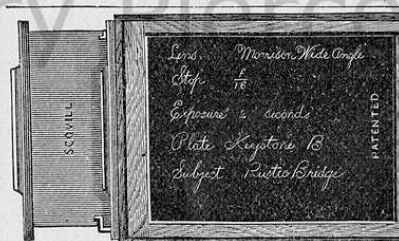 SCOVILL
Lens. Morrison Wide Angle
Stop F/16
Exposure 2 seconds
Plate Keystone B
Subject Rustic Bridge
PATENTED